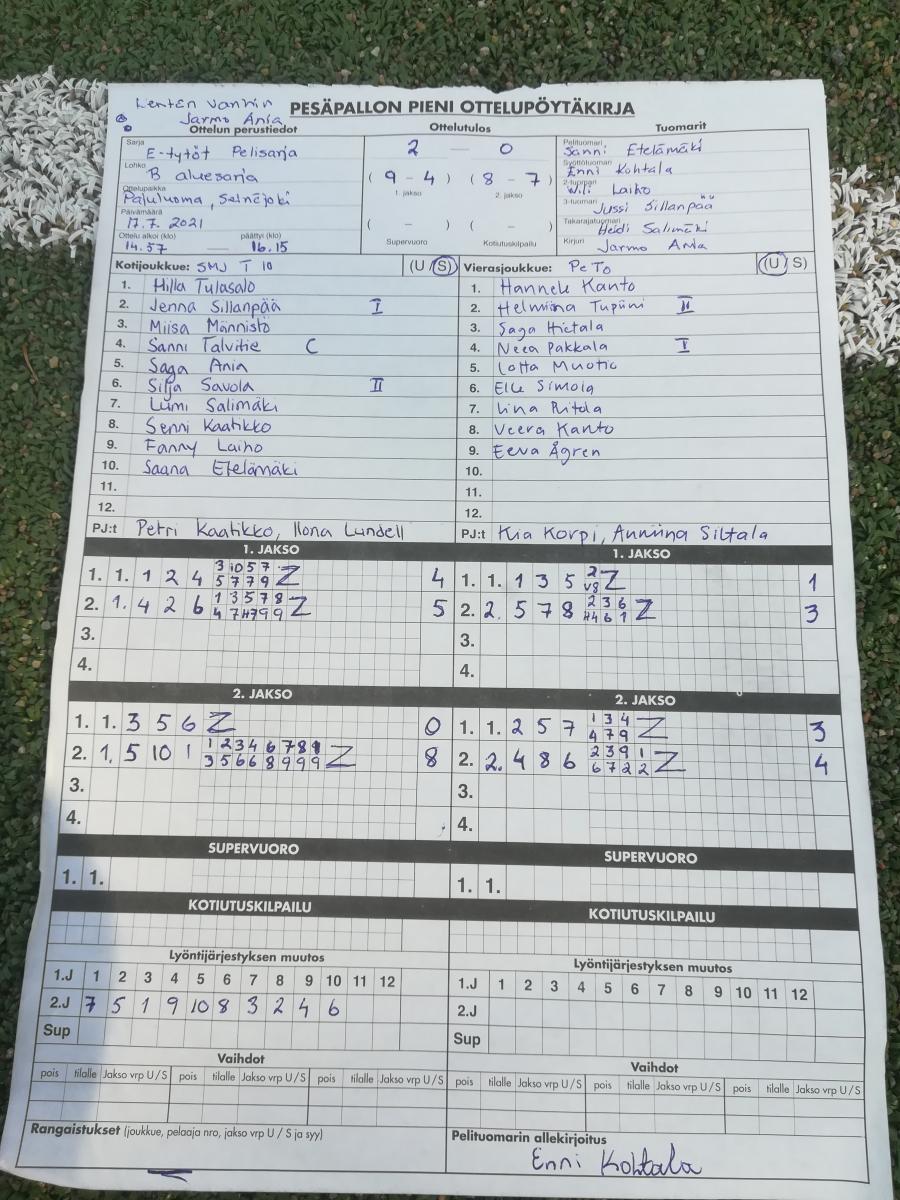 Kenten vanhin
Jarmo Ania
PESÄPALLON PIENI OTTELUPÖYTÄKIRJA
Ottelun perustiedot
Ottelutulos
Tuomarit
Sarja E-tytöt Pelisarja
Lohko B aluesarja
Ottelupaikka Pajuluoma, Seinäjoki
Päivämäärä 17.7.2021
Ottelu alkoi (klo) päättyi (klo)
14.57 — 16.15
2 — 0
(9 - 4) (8 - 7)
1. jakso 2. jakso
( - ) ( - )
Supervuoro Kotiutuskilpailu
Pelituomari Sanni Etelämäki
Syöttötuomari Enni Kohtala
2-tuomari Wili Laiho
3-tuomari Jussi Sillanpää
Takarajatuomari Heidi Salimäki
Kirjuri Jarmo Ania
Kotijoukkue: SMJ T 10 (U/S)
1. Hilla Tulasalo
2. Jenna Sillanpää I
3. Miisa Männistö
4. Sanni Talvitie C
5. Saga Ania
6. Silja Savola II
7. Lumi Salimäki
8. Senni Kaatikko
9. Fanny Laiho
10. Saana Etelämäki
11.
12.
PJ:t Petri Kaatikko, Ilona Lundell
Vierasjoukkue: PeTo (U/S)
1. Hannele Kanto
2. Helmiina Tupiini II
3. Saga Hietala
4. Neea Pakkala I
5. Lotta Muotio
6. Elle Simola
7. Iina Ritola
8. Veera Kanto
9. Eeva Ågren
10.
11.
12.
PJ:t Kia Korpi, Anniina Siltala
1. JAKSO
1. 1. 1 2 4 3 10 5 7 Z 4
5 7 7 9
2. 1. 4 2 6 1 3 5 7 8 Z 5
4 7 H7 9 9
3.
4.
1. JAKSO
1. 1. 1 3 5 2 Z 1
V8
2. 2. 5 7 8 2 3 6 Z 3
H4 6 1
3.
4.
2. JAKSO
1. 1. 3 5 6 Z 0
2. 1. 5 10 1 1 2 3 4 6 7 8 9 Z 8
3 5 6 6 8 9 9 9
3.
4.
2. JAKSO
1. 1. 2 5 7 1 3 4 Z 3
4 7 9
2. 2. 4 8 6 2 3 9 1 Z 4
6 7 2 2
3.
4.
SUPERVUORO
1. 1.
SUPERVUORO
1. 1.
KOTIUTUSKILPAILU
KOTIUTUSKILPAILU
Lyöntijärjestyksen muutos
1.J 1 2 3 4 5 6 7 8 9 10 11 12
2.J 7 5 1 9 10 8 3 2 4 6
Sup
Lyöntijärjestyksen muutos
1.J 1 2 3 4 5 6 7 8 9 10 11 12
2.J
Sup
Vaihdot
pois tilalle Jakso vrp U/S pois tilalle Jakso vrp U/S pois tilalle Jakso vrp U/S
Vaihdot
pois tilalle Jakso vrp U/S pois tilalle Jakso vrp U/S pois tilalle Jakso vrp U/S
Rangaistukset (joukkue, pelaaja nro, jakso vrp U / S ja syy)
Pelituomarin allekirjoitus
Enni Kohtala